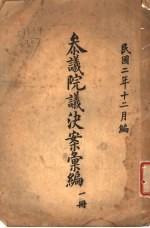 民國二年十二月編
參議院議決案彙編 一冊